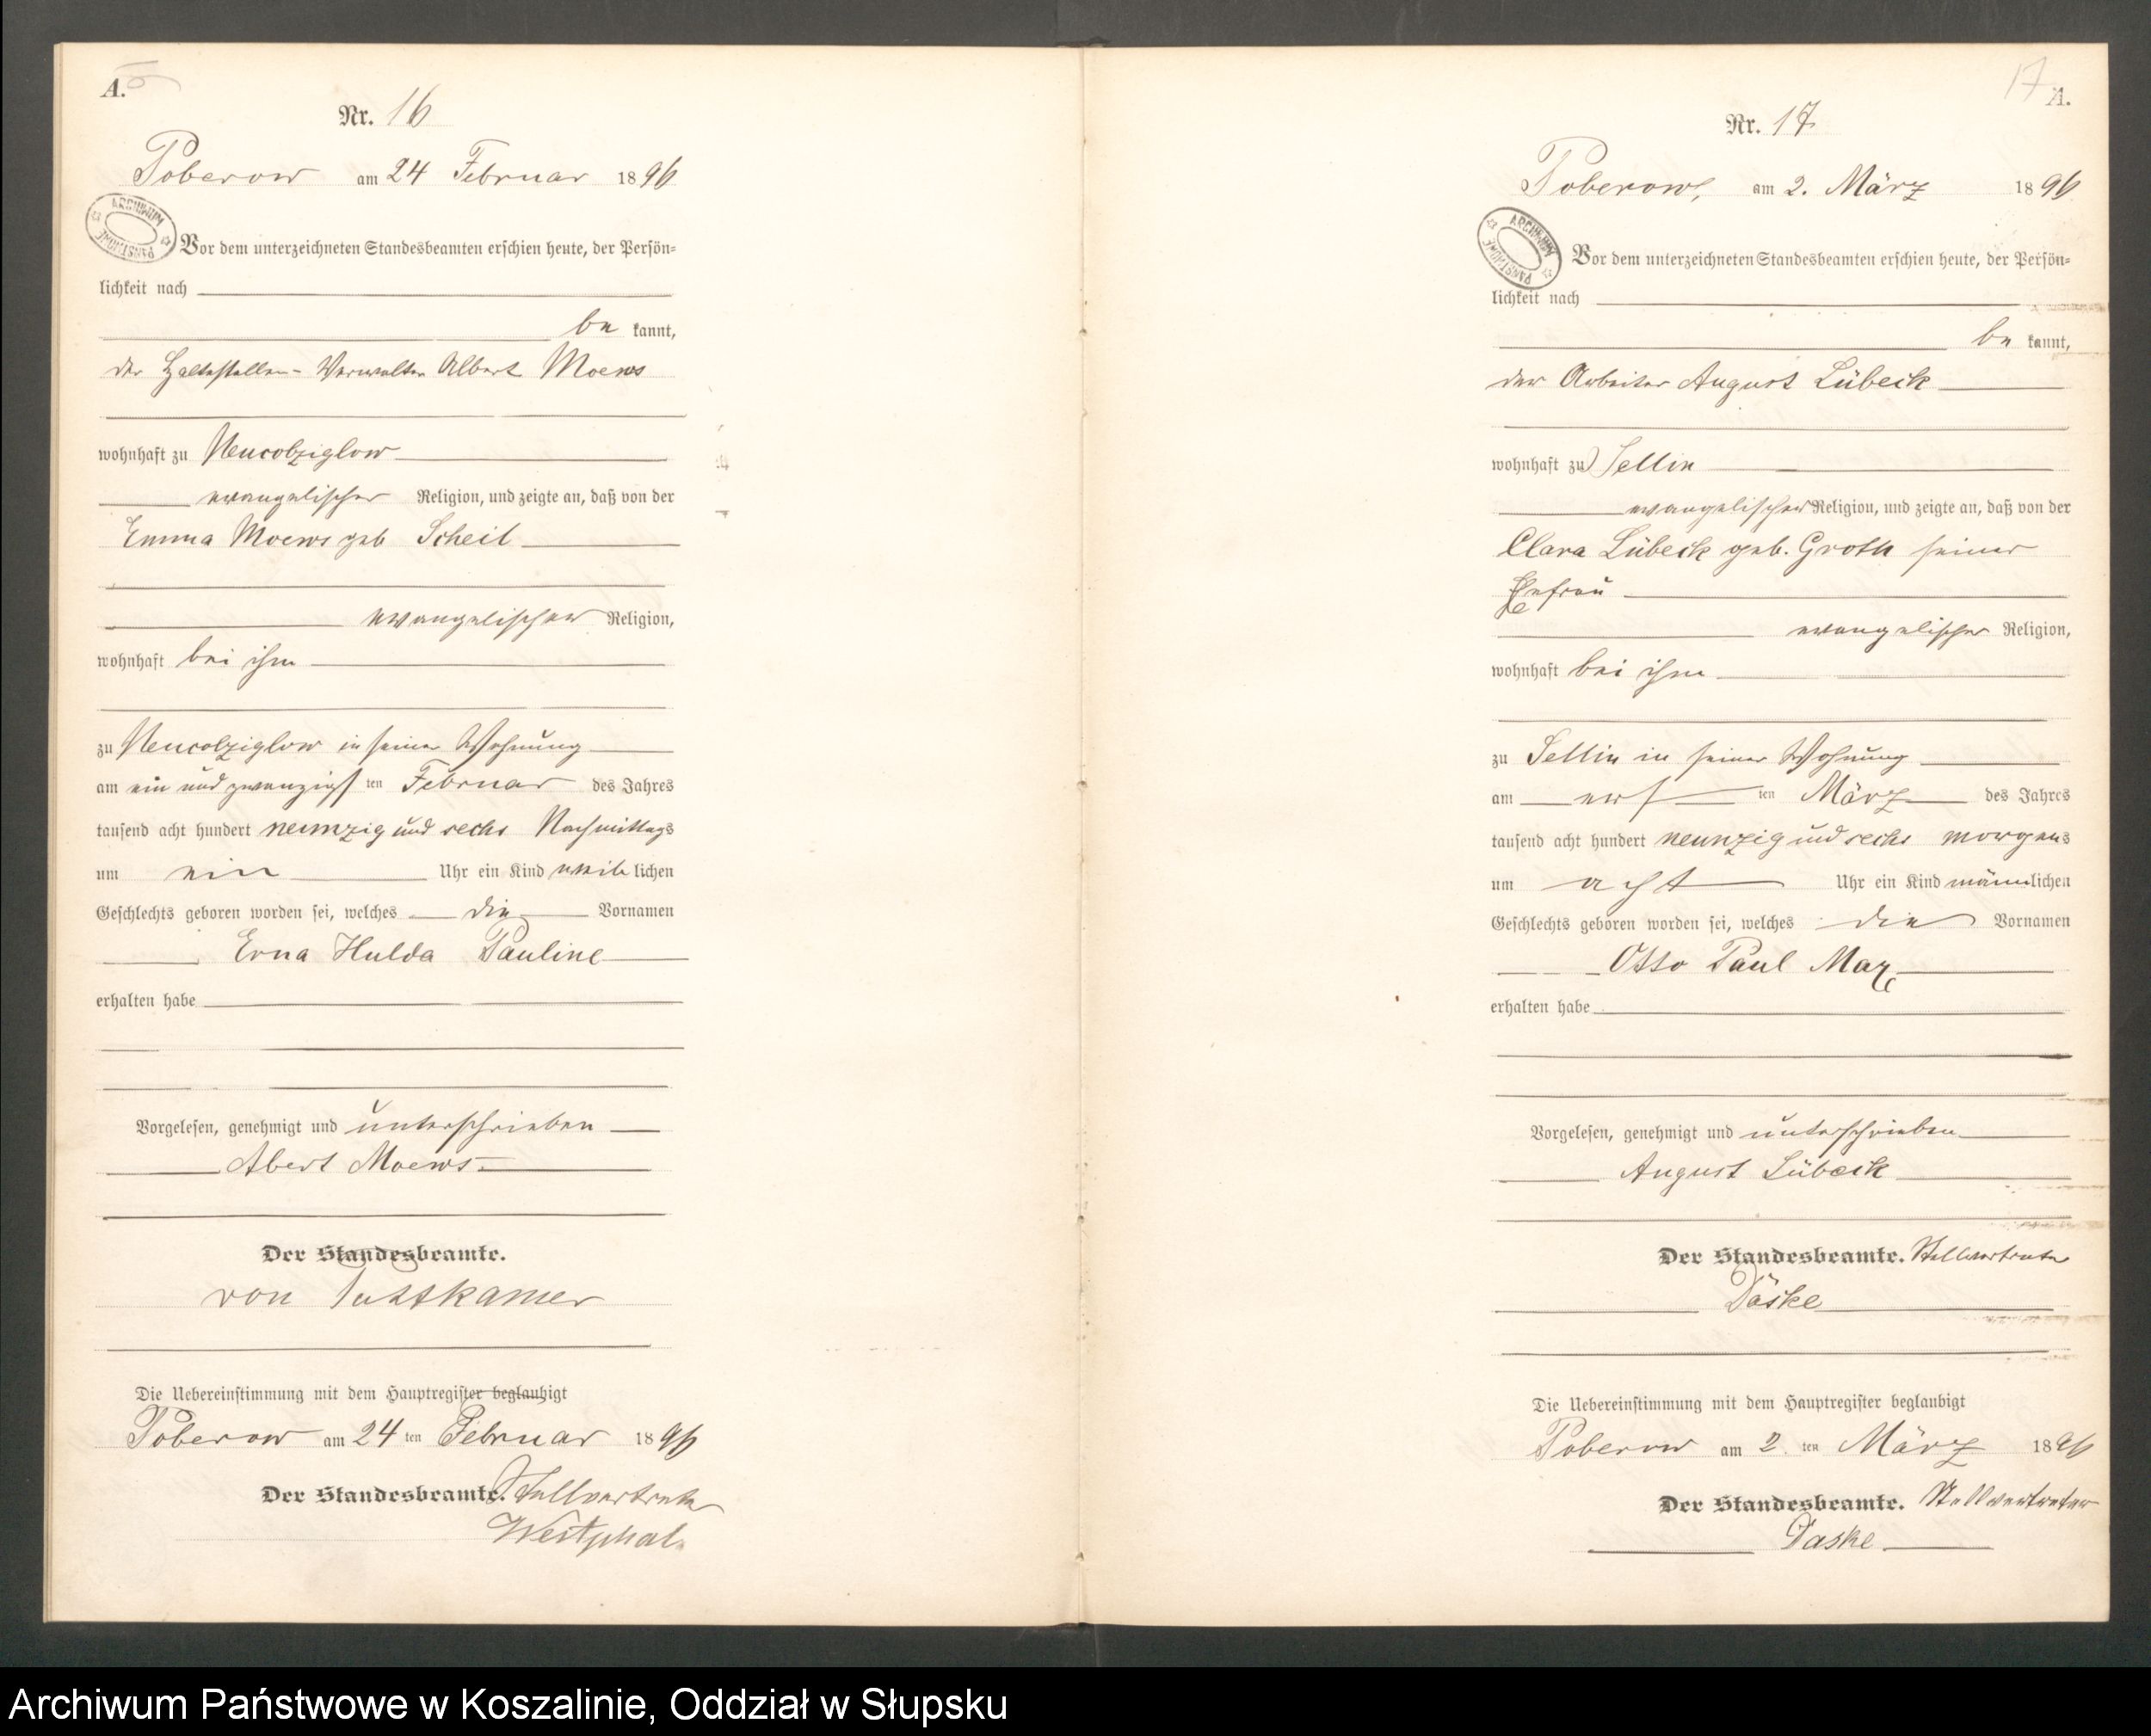 A.
Nr. 16
Poberow am 24 Februar 1896
ARCHIWUM PAŃSTWOWE
Vor dem unterzeichneten Standesbeamten erschien heute, der Persön-
lichkeit nach
be kannt,
der Haltestellen-Verwalter Albert Moews
wohnhaft zu Neucolziglow
evangelischer Religion, und zeigte an, daß von der
Emma Moews geb Scheil
evangelischer Religion,
wohnhaft bei ihm
zu Neucolziglow in seiner Wohnung
am ein und zwanzigsten Februar des Jahres
tausend acht hundert neunzig und sechs Nachmittags
um ein Uhr ein Kind weiblichen
Geschlechts geboren worden sei, welches die Vornamen
Erna Hulda Pauline
erhalten habe
Vorgelesen, genehmigt und unterschrieben
Abert Moews
Der Standesbeamte.
von Puttkamer
Die Uebereinstimmung mit dem Hauptregister beglaubigt
Poberow am 24 ten Februar 1896
Der Standesbeamte. Stellvertreter
Westphal
17
A.
Nr. 17
Poberow, am 2. März 1896
ARCHIWUM PAŃSTWOWE
Vor dem unterzeichneten Standesbeamten erschien heute, der Persön-
lichkeit nach
be kannt,
der Arbeiter August Lübeck
wohnhaft zu Sellin
evangelischer Religion, und zeigte an, daß von der
Clara Lübeck geb. Groth seiner
Ehefrau
evangelischer Religion,
wohnhaft bei ihm
zu Sellin in seiner Wohnung
am ersten März des Jahres
tausend acht hundert neunzig und sechs morgens
um acht Uhr ein Kind männlichen
Geschlechts geboren worden sei, welches die Vornamen
Otto Paul Max
erhalten habe
Vorgelesen, genehmigt und unterschrieben
August Lübeck
Der Standesbeamte. Stellvertreter
Däske
Die Uebereinstimmung mit dem Hauptregister beglaubigt
Poberow am 2. ten März 1896
Der Standesbeamte. Stellvertreter
Daske
Archiwum Państwowe w Koszalinie, Oddział w Słupsku